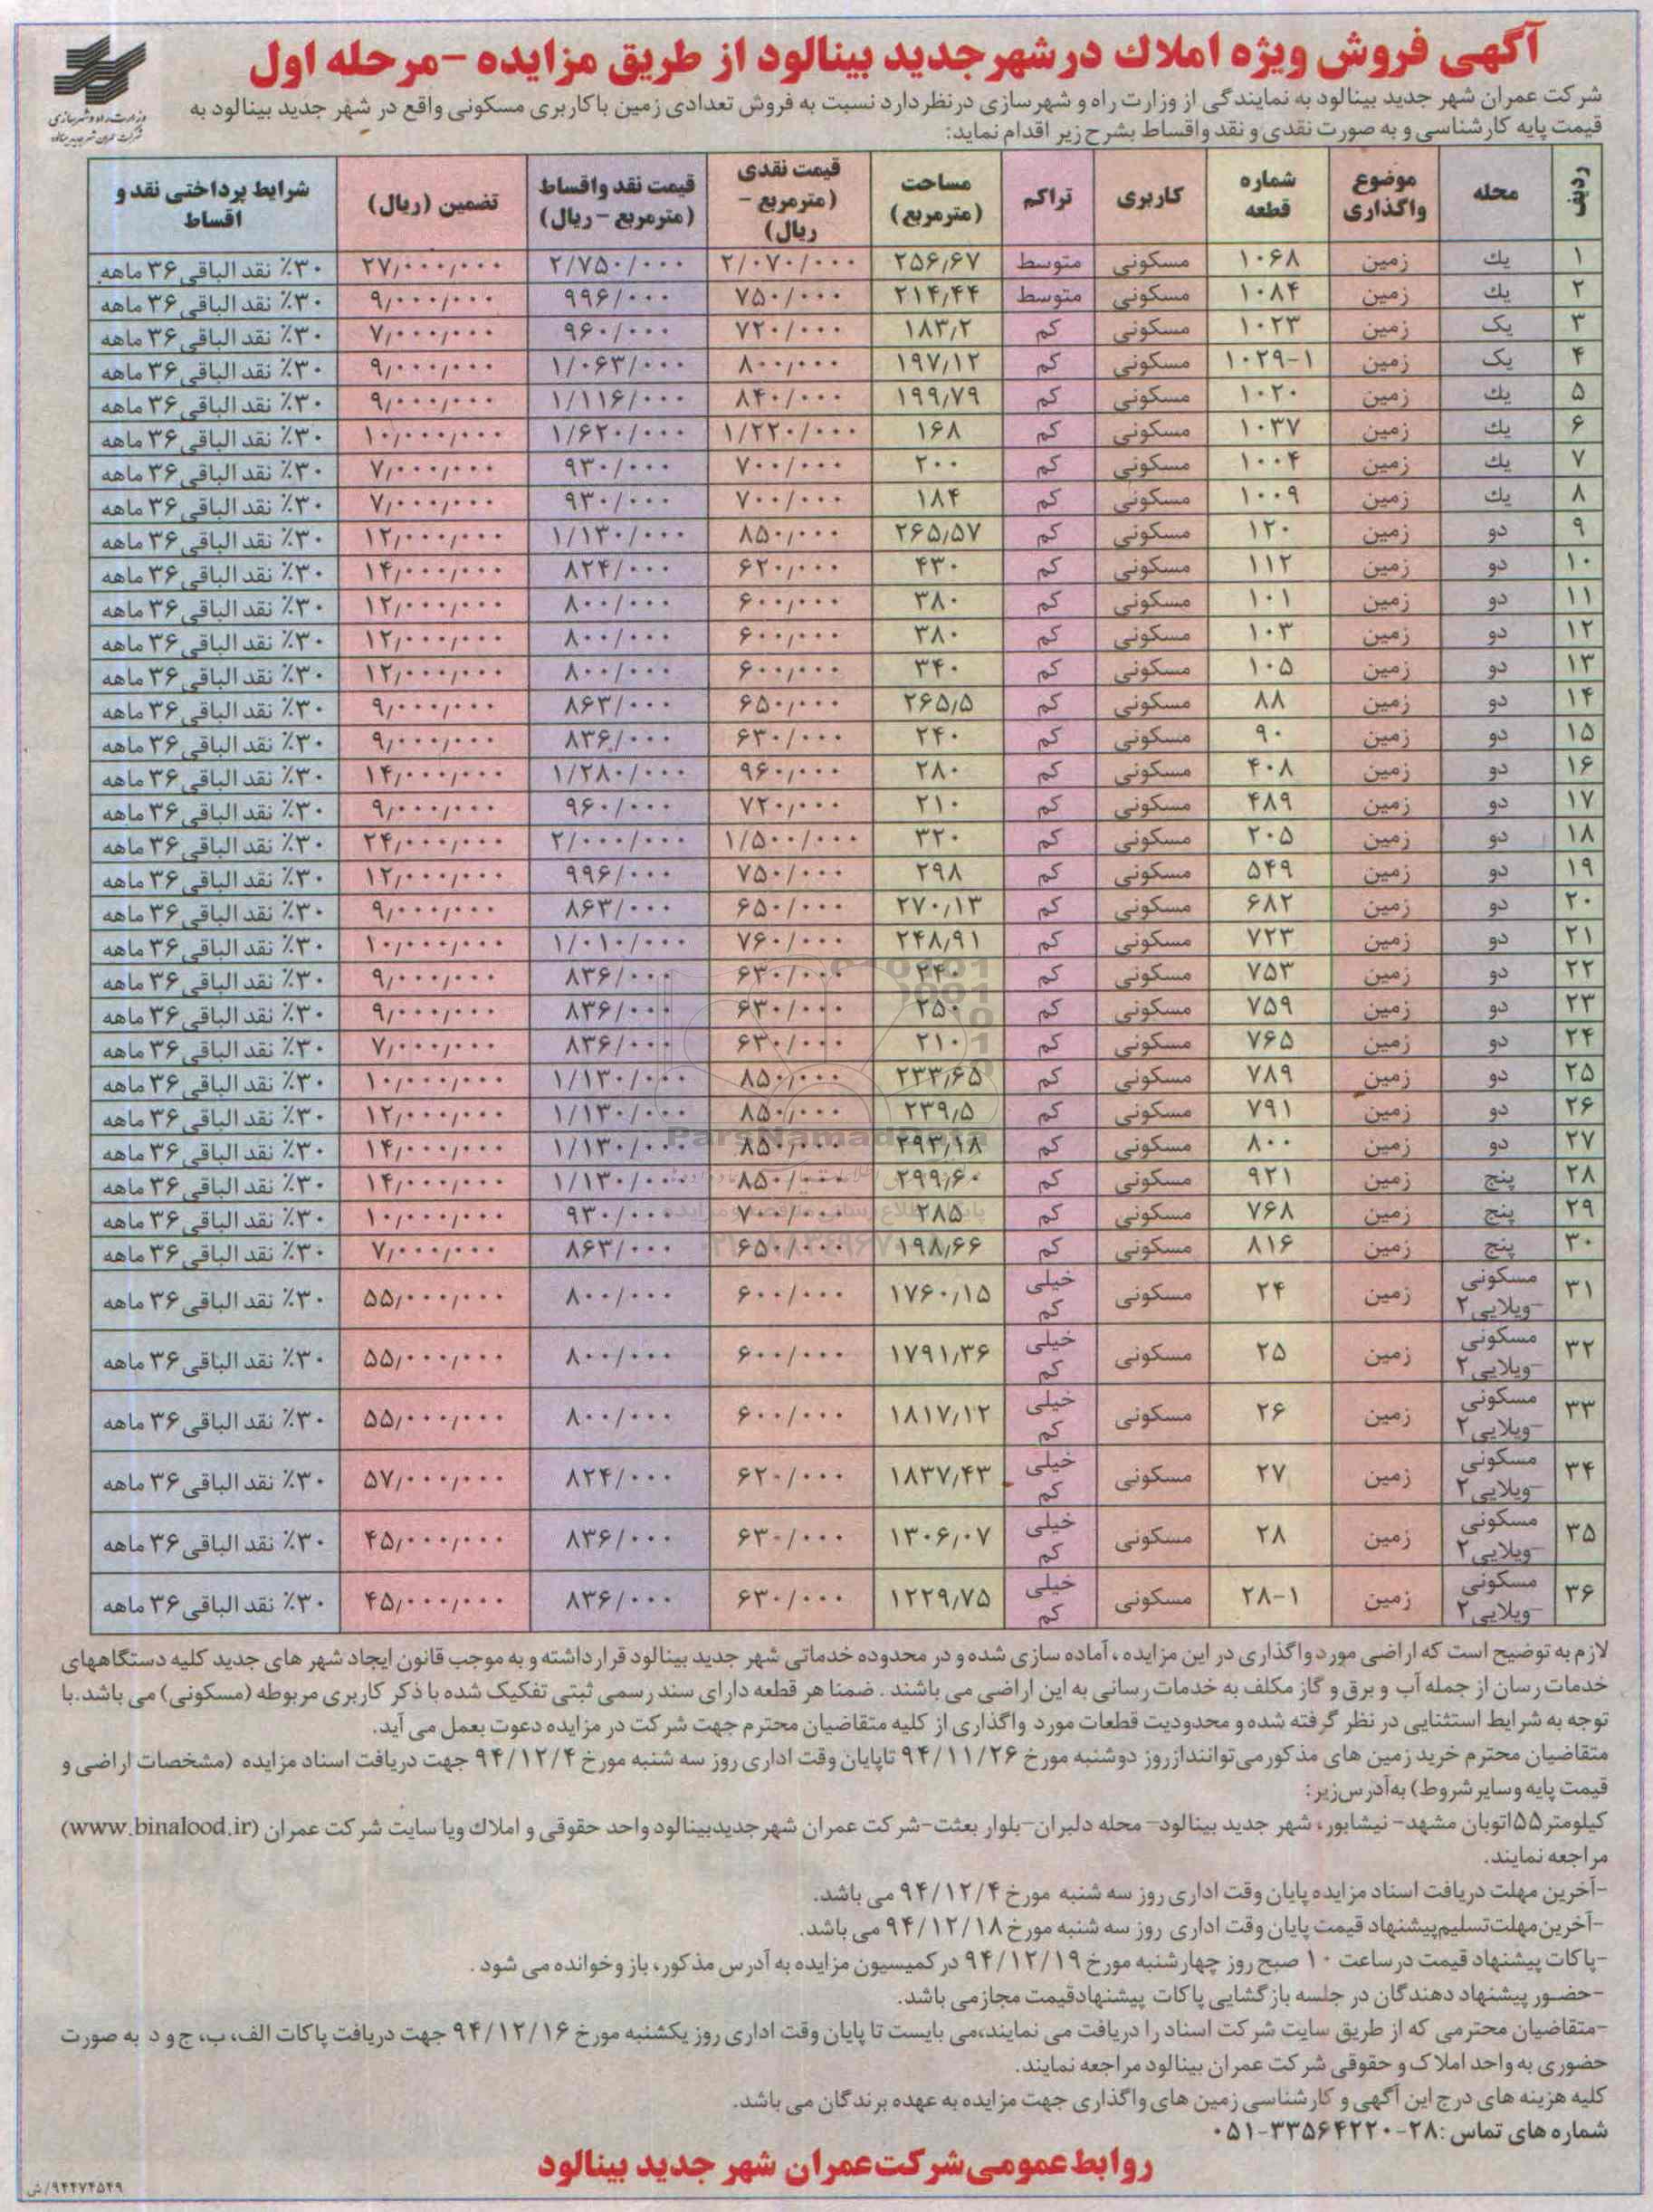 آگهی فروش ویژه املاک در شهر جدید بینالود از طریق مزایده -مرحله اول
وزارت راه و شهرسازی
شرکت عمران شهر جدید بینالود
شرکت عمران شهر جدید بینالود به نمایندگی از وزارت راه و شهرسازی در نظر دارد نسبت به فروش تعدادی زمین با کاربری مسکونی واقع در شهر جدید بینالود به
قیمت پایه کارشناسی و به صورت نقدی و نقد و اقساط بشرح زیر اقدام نماید:
ردیف محله موضوع واگذاری شماره قطعه کاربری تراکم مساحت (مترمربع) قیمت نقدی (مترمربع - ریال) قیمت نقد واقساط (مترمربع - ریال) تضمین (ریال) شرایط پرداختی نقد و اقساط
۱ یك زمین ۱۰۶۸ مسکونی متوسط ۲۵۶٫۶۷ ۲/۰۷۰/۰۰۰ ۲/۷۵۰/۰۰۰ ۲۷٫۰۰۰٫۰۰۰ ۳۰٪ نقد الباقی ۳۶ ماهه
۲ یك زمین ۱۰۸۴ مسکونی متوسط ۲۱۴٫۴۴ ۷۵۰/۰۰۰ ۹۹۶/۰۰۰ ۹٫۰۰۰٫۰۰۰ ۳۰٪ نقد الباقی ۳۶ ماهه
۳ یک زمین ۱۰۲۳ مسکونی کم ۱۸۳٫۲ ۷۲۰/۰۰۰ ۹۶۰/۰۰۰ ۷٫۰۰۰٫۰۰۰ ۳۰٪ نقد الباقی ۳۶ ماهه
۴ یک زمین ۱۰۲۹-۱ مسکونی کم ۱۹۷٫۱۲ ۸۰۰٫۰۰۰ ۱/۰۶۳/۰۰۰ ۹٫۰۰۰٫۰۰۰ ۳۰٪ نقد الباقی ۳۶ ماهه
۵ یك زمین ۱۰۲۰ مسکونی کم ۱۹۹٫۷۹ ۸۴۰/۰۰۰ ۱/۱۱۶/۰۰۰ ۹٫۰۰۰٫۰۰۰ ۳۰٪ نقد الباقی ۳۶ ماهه
۶ یك زمین ۱۰۳۷ مسکونی کم ۱۶۸ ۱/۲۲۰/۰۰۰ ۱/۶۲۰/۰۰۰ ۱۰٫۰۰۰٫۰۰۰ ۳۰٪ نقد الباقی ۳۶ ماهه
۷ یك زمین ۱۰۰۴ مسکونی کم ۲۰۰ ۷۰۰/۰۰۰ ۹۳۰/۰۰۰ ۷٫۰۰۰٫۰۰۰ ۳۰٪ نقد الباقی ۳۶ ماهه
۸ یك زمین ۱۰۰۹ مسکونی کم ۱۸۴ ۷۰۰/۰۰۰ ۹۳۰/۰۰۰ ۷٫۰۰۰٫۰۰۰ ۳۰٪ نقد الباقی ۳۶ ماهه
۹ دو زمین ۱۲۰ مسکونی کم ۲۶۵٫۵۷ ۸۵۰٫۰۰۰ ۱/۱۳۰/۰۰۰ ۱۲٫۰۰۰٫۰۰۰ ۳۰٪ نقد الباقی ۳۶ ماهه
۱۰ دو زمین ۱۱۲ مسکونی کم ۴۳۰ ۶۲۰٫۰۰۰ ۸۲۴/۰۰۰ ۱۴٫۰۰۰٫۰۰۰ ۳۰٪ نقد الباقی ۳۶ ماهه
۱۱ دو زمین ۱۰۱ مسکونی کم ۳۸۰ ۶۰۰٫۰۰۰ ۸۰۰/۰۰۰ ۱۲٫۰۰۰٫۰۰۰ ۳۰٪ نقد الباقی ۳۶ ماهه
۱۲ دو زمین ۱۰۳ مسکونی کم ۳۸۰ ۶۰۰٫۰۰۰ ۸۰۰/۰۰۰ ۱۲٫۰۰۰٫۰۰۰ ۳۰٪ نقد الباقی ۳۶ ماهه
۱۳ دو زمین ۱۰۵ مسکونی کم ۳۴۰ ۶۰۰٫۰۰۰ ۸۰۰/۰۰۰ ۱۲٫۰۰۰٫۰۰۰ ۳۰٪ نقد الباقی ۳۶ ماهه
۱۴ دو زمین ۸۸ مسکونی کم ۲۶۵٫۵ ۶۵۰٫۰۰۰ ۸۶۳/۰۰۰ ۹٫۰۰۰٫۰۰۰ ۳۰٪ نقد الباقی ۳۶ ماهه
۱۵ دو زمین ۹۰ مسکونی کم ۲۴۰ ۶۳۰/۰۰۰ ۸۳۶/۰۰۰ ۹٫۰۰۰٫۰۰۰ ۳۰٪ نقد الباقی ۳۶ ماهه
۱۶ دو زمین ۴۰۸ مسکونی کم ۲۸۰ ۹۶۰٫۰۰۰ ۱/۲۸۰/۰۰۰ ۱۴٫۰۰۰٫۰۰۰ ۳۰٪ نقد الباقی ۳۶ ماهه
۱۷ دو زمین ۴۸۹ مسکونی کم ۲۱۰ ۷۲۰٫۰۰۰ ۹۶۰/۰۰۰ ۹٫۰۰۰٫۰۰۰ ۳۰٪ نقد الباقی ۳۶ ماهه
۱۸ دو زمین ۲۰۵ مسکونی کم ۳۲۰ ۱/۵۰۰/۰۰۰ ۲/۰۰۰/۰۰۰ ۲۴٫۰۰۰٫۰۰۰ ۳۰٪ نقد الباقی ۳۶ ماهه
۱۹ دو زمین ۵۴۹ مسکونی کم ۲۹۸ ۷۵۰/۰۰۰ ۹۹۶/۰۰۰ ۱۲٫۰۰۰٫۰۰۰ ۳۰٪ نقد الباقی ۳۶ ماهه
۲۰ دو زمین ۶۸۲ مسکونی کم ۲۷۰٫۱۳ ۶۵۰/۰۰۰ ۸۶۳/۰۰۰ ۹٫۰۰۰٫۰۰۰ ۳۰٪ نقد الباقی ۳۶ ماهه
۲۱ دو زمین ۷۲۳ مسکونی کم ۲۴۸٫۹۱ ۷۶۰/۰۰۰ ۱/۰۱۰/۰۰۰ ۱۰٫۰۰۰٫۰۰۰ ۳۰٪ نقد الباقی ۳۶ ماهه
۲۲ دو زمین ۷۵۳ مسکونی کم ۲۴۰ ۶۳۰/۰۰۰ ۸۳۶/۰۰۰ ۹٫۰۰۰٫۰۰۰ ۳۰٪ نقد الباقی ۳۶ ماهه
۲۳ دو زمین ۷۵۹ مسکونی کم ۲۵۰ ۶۳۰/۰۰۰ ۸۳۶/۰۰۰ ۹٫۰۰۰٫۰۰۰ ۳۰٪ نقد الباقی ۳۶ ماهه
۲۴ دو زمین ۷۶۵ مسکونی کم ۲۱۰ ۶۳۰/۰۰۰ ۸۳۶/۰۰۰ ۷٫۰۰۰٫۰۰۰ ۳۰٪ نقد الباقی ۳۶ ماهه
۲۵ دو زمین ۷۸۹ مسکونی کم ۲۳۳٫۶۵ ۸۵۰٫۰۰۰ ۱/۱۳۰/۰۰۰ ۱۰٫۰۰۰٫۰۰۰ ۳۰٪ نقد الباقی ۳۶ ماهه
۲۶ دو زمین ۷۹۱ مسکونی کم ۲۳۹٫۵ ۸۵۰٫۰۰۰ ۱/۱۳۰/۰۰۰ ۱۲٫۰۰۰٫۰۰۰ ۳۰٪ نقد الباقی ۳۶ ماهه
۲۷ دو زمین ۸۰۰ مسکونی کم ۲۹۳٫۱۸ ۸۵۰٫۰۰۰ ۱/۱۳۰/۰۰۰ ۱۴٫۰۰۰٫۰۰۰ ۳۰٪ نقد الباقی ۳۶ ماهه
ParsNamadData
۲۸ پنج زمین ۹۲۱ مسکونی کم ۲۹۹٫۶۰ ۸۵۰/۰۰۰ ۱/۱۳۰/۰۰۰ ۱۴٫۰۰۰٫۰۰۰ ۳۰٪ نقد الباقی ۳۶ ماهه
۲۹ پنج زمین ۷۶۸ مسکونی کم ۲۸۵ ۷۰۰/۰۰۰ ۹۳۰/۰۰۰ ۱۰٫۰۰۰٫۰۰۰ ۳۰٪ نقد الباقی ۳۶ ماهه
۳۰ پنج زمین ۸۱۶ مسکونی کم ۱۹۸٫۶۶ ۶۵۰/۰۰۰ ۸۶۳/۰۰۰ ۷٫۰۰۰٫۰۰۰ ۳۰٪ نقد الباقی ۳۶ ماهه
۳۱ مسکونی -ویلایی ۲ زمین ۲۴ مسکونی خیلی کم ۱۷۶۰٫۱۵ ۶۰۰/۰۰۰ ۸۰۰/۰۰۰ ۵۵٫۰۰۰٫۰۰۰ ۳۰٪ نقد الباقی ۳۶ ماهه
۳۲ مسکونی -ویلایی ۲ زمین ۲۵ مسکونی خیلی کم ۱۷۹۱٫۳۶ ۶۰۰/۰۰۰ ۸۰۰/۰۰۰ ۵۵٫۰۰۰٫۰۰۰ ۳۰٪ نقد الباقی ۳۶ ماهه
۳۳ مسکونی -ویلایی ۲ زمین ۲۶ مسکونی خیلی کم ۱۸۱۷٫۱۲ ۶۰۰/۰۰۰ ۸۰۰/۰۰۰ ۵۵٫۰۰۰٫۰۰۰ ۳۰٪ نقد الباقی ۳۶ ماهه
۳۴ مسکونی -ویلایی ۲ زمین ۲۷ مسکونی خیلی کم ۱۸۳۷٫۴۳ ۶۲۰/۰۰۰ ۸۲۴/۰۰۰ ۵۷٫۰۰۰٫۰۰۰ ۳۰٪ نقد الباقی ۳۶ ماهه
۳۵ مسکونی -ویلایی ۲ زمین ۲۸ مسکونی خیلی کم ۱۳۰۶٫۰۷ ۶۳۰/۰۰۰ ۸۳۶/۰۰۰ ۴۵٫۰۰۰٫۰۰۰ ۳۰٪ نقد الباقی ۳۶ ماهه
۳۶ مسکونی -ویلایی ۲ زمین ۲۸-۱ مسکونی خیلی کم ۱۲۲۹٫۷۵ ۶۳۰/۰۰۰ ۸۳۶/۰۰۰ ۴۵٫۰۰۰٫۰۰۰ ۳۰٪ نقد الباقی ۳۶ ماهه
لازم به توضیح است که اراضی مورد واگذاری در این مزایده ، آماده سازی شده و در محدوده خدماتی شهر جدید بینالود قرار داشته و به موجب قانون ایجاد شهر های جدید کلیه دستگاههای
خدمات رسان از جمله آب و برق و گاز مکلف به خدمات رسانی به این اراضی می باشند . ضمنا هر قطعه دارای سند رسمی ثبتی تفکیک شده با ذکر کاربری مربوطه (مسکونی) می باشد. با
توجه به شرایط استثنایی در نظر گرفته شده و محدودیت قطعات مورد واگذاری از کلیه متقاضیان محترم جهت شرکت در مزایده دعوت بعمل می آید.
متقاضیان محترم خرید زمین های مذکور می‌توانند از روز دوشنبه مورخ ۹۴/۱۱/۲۶ تا پایان وقت اداری روز سه شنبه مورخ ۹۴/۱۲/۴ جهت دریافت اسناد مزایده (مشخصات اراضی و
قیمت پایه و سایر شروط) به آدرس زیر:
کیلومتر ۵۵ اتوبان مشهد- نیشابور، شهر جدید بینالود- محله دلبران-بلوار بعثت-شرکت عمران شهر جدید بینالود واحد حقوقی و املاك ویا سایت شرکت عمران (www.binalood.ir)
مراجعه نمایند.
-آخرین مهلت دریافت اسناد مزایده پایان وقت اداری روز سه شنبه مورخ ۹۴/۱۲/۴ می باشد.
-آخرین مهلت تسلیم پیشنهاد قیمت پایان وقت اداری روز سه شنبه مورخ ۹۴/۱۲/۱۸ می باشد.
-پاکات پیشنهاد قیمت در ساعت ۱۰ صبح روز چهارشنبه مورخ ۹۴/۱۲/۱۹ در کمیسیون مزایده به آدرس مذکور، باز و خوانده می شود .
-حضور پیشنهاد دهندگان در جلسه بازگشایی پاکات پیشنهاد قیمت مجاز می باشد.
-متقاضیان محترمی که از طریق سایت شرکت اسناد را دریافت می نمایند،می بایست تا پایان وقت اداری روز یکشنبه مورخ ۹۴/۱۲/۱۶ جهت دریافت پاکات الف، ب، ج و د به صورت
حضوری به واحد املاک و حقوقی شرکت عمران بینالود مراجعه نمایند.
کلیه هزینه های درج این آگهی و کارشناسی زمین های واگذاری جهت مزایده به عهده برندگان می باشد.
شماره های تماس :۲۸-۳۳۵۶۴۲۲۰-۰۵۱
روابط عمومی شرکت عمران شهر جدید بینالود
۹۴۴۷۴۵۴۹/ش